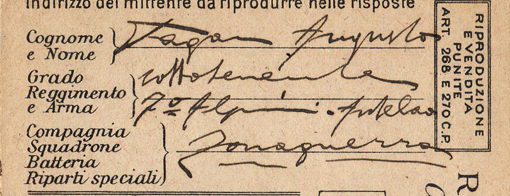 indirizzo del mittente da riprodurre nelle risposte
Cognome e Nome } Pagan Augusto
Grado } sottotenente
Reggimento e Arma } 7º Alpini - Antelao
Compagnia
Squadrone
Batteria
Riparti speciali } Zonaguerra
RIPRODUZIONE
E VENDITA
PUNITE
ART. 268 E 270 C.P.